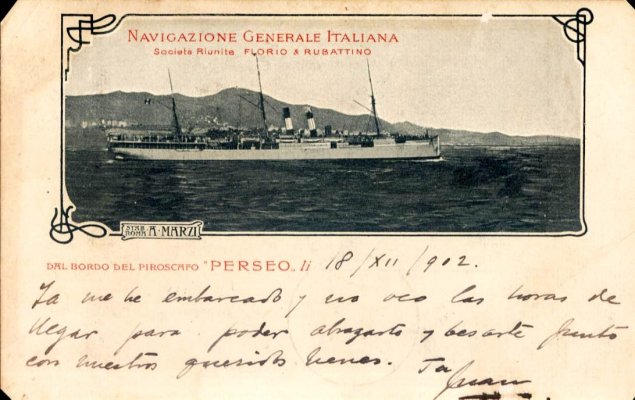 NAVIGAZIONE GENERALE ITALIANA
Società Riunite FLORIO & RUBATTINO
STAB. ROMA A. MARZI
DAL BORDO DEL PIROSCAFO "PERSEO" li 18/XII/902.
Ya me he embarcado y no veo las horas de
llegar para poder abrazarte y besarte junto
con nuestros queridos nenes. Tu
Juan